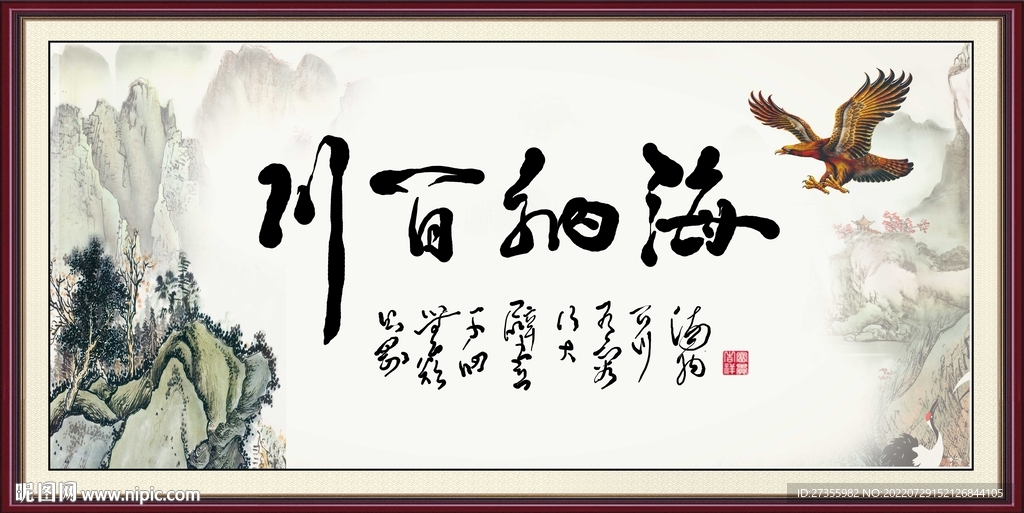 海納百川
海納
百川
有容
乃大
壁立
千仞
無欲
则刚
富貴
吉祥
昵图网 www.nipic.com
ID:27355982 NO:20220729152126844105